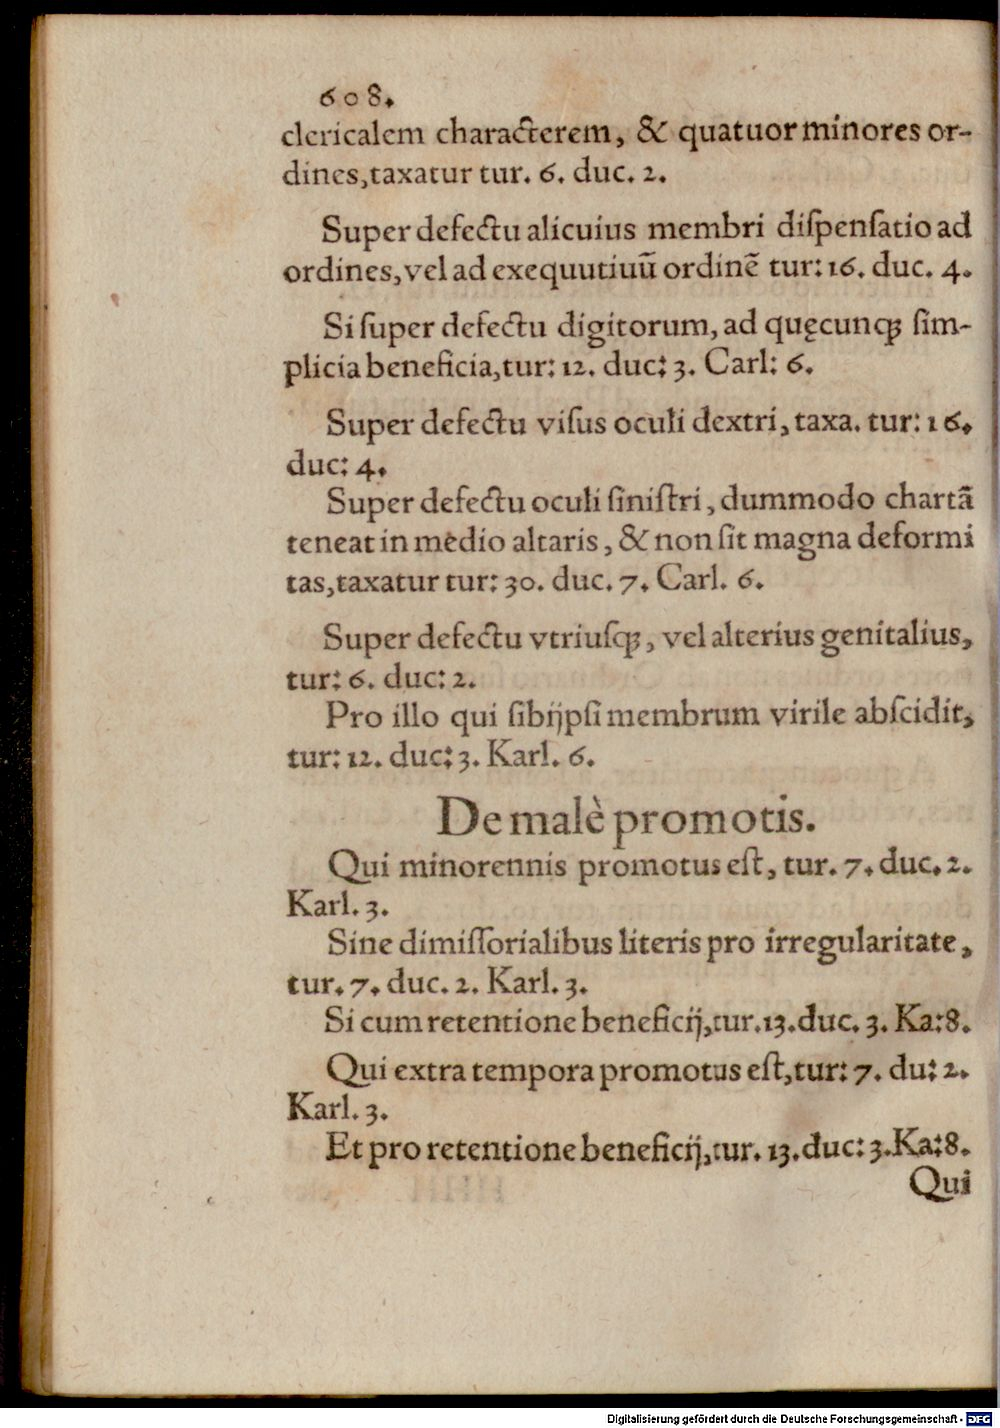 608.
clericalem characterem, & quatuor minores or-
dines, taxatur tur. 6. duc. 2.
Super defectu alicuius membri diſpenſatio ad
ordines, vel ad exequutiuū ordinē tur: 16. duc. 4.
Si ſuper defectu digitorum, ad quęcunqꝫ ſim-
plicia beneficia, tur: 12. duc: 3. Carl: 6.
Super defectu viſus oculi dextri, taxa. tur: 16.
duc: 4.
Super defectu oculi ſiniſtri, dummodo chartā
teneat in mèdio altaris, & non ſit magna deformi
tas, taxatur tur: 30. duc. 7. Carl. 6.
Super defectu vtriuſqꝫ, vel alterius genitalius,
tur: 6. duc: 2.
Pro illo qui ſibijpſi membrum virile abſcidit,
tur: 12. duc: 3. Karl. 6.
De malè promotis.
Qui minorennis promotus eſt, tur. 7. duc. 2.
Karl. 3.
Sine dimiſſorialibus literis pro irregularitate,
tur. 7. duc. 2. Karl. 3.
Si cum retentione beneficij, tur. 13. duc. 3. Ka: 8.
Qui extra tempora promotus eſt, tur: 7. du: 2.
Karl. 3.
Et pro retentione beneficij, tur. 13. duc: 3. Ka: 8.
Qui
Digitalisierung gefördert durch die Deutsche Forschungsgemeinschaft - DFG